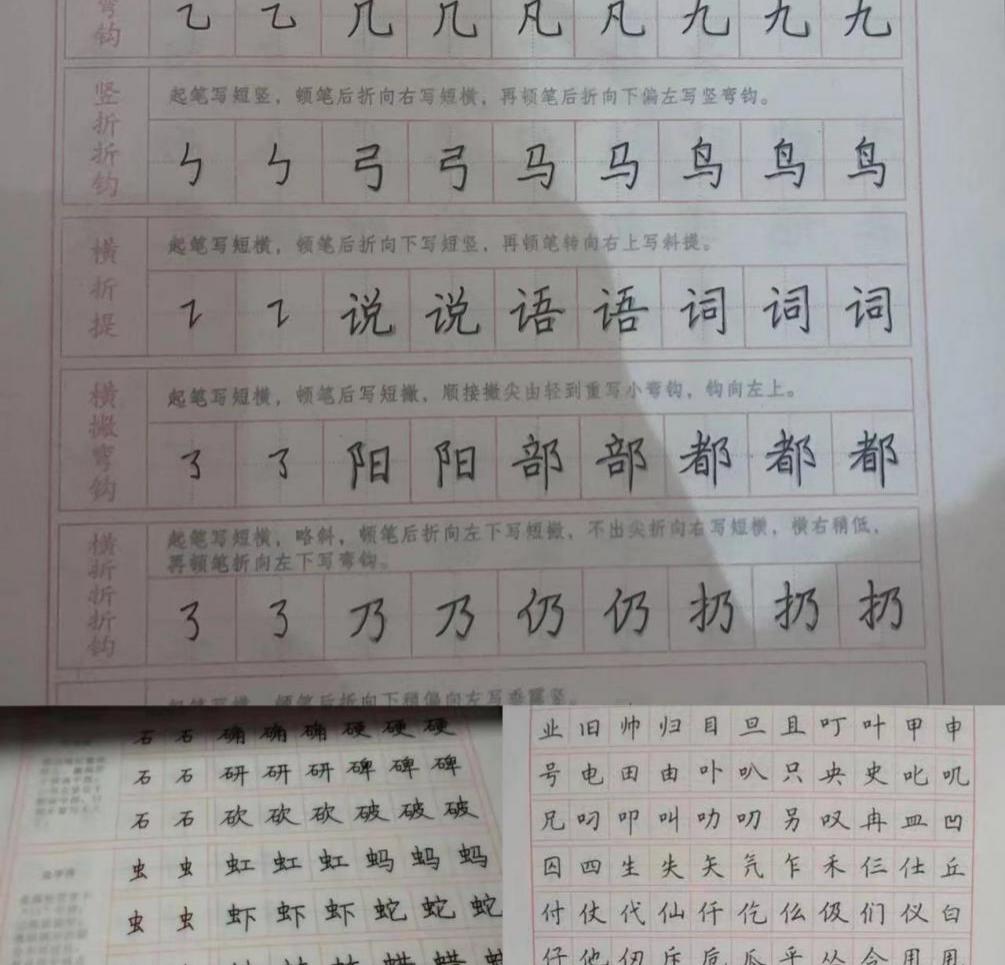 弯钩
乙 乙 几 几 凡 凡 九 九 九
竖折折钩
起笔写短竖，顿笔后折向右写短横，再顿笔后折向下偏左写竖弯钩。
㇉ ㇉ 弓 弓 马 马 鸟 鸟 鸟
横折提
起笔写短横，顿笔后折向下写短竖，再顿笔转向右上写斜提。
㇊ ㇊ 说 说 语 语 词 词 词
横撇弯钩
起笔写短横，顿笔后写短撇，顺接撇尖由轻到重写小弯钩，钩向左上。
㇌ ㇌ 阳 阳 部 部 都 都 都
横折折折钩
起笔写短横，略斜，顿笔后折向左下写短撇，不出尖折向右写短横，横右稍低，
再顿笔折向左下写弯钩。
㇡ ㇡ 乃 乃 仍 仍 扔 扔 扔
起笔写横，顿笔后折向下稍偏向左写垂露竖。
石 石 确 确 确 硬 硬 硬
石 石 研 研 研 碑 碑 碑
石 石 砍 砍 砍 破 破 破
虫 虫 虹 虹 虹 蚂 蚂 蚂
虫 虫 虾 虾 虾 蛇 蛇 蛇
业 旧 帅 归 目 旦 且 叮 叶 甲 申
号 电 田 由 卟 叭 只 央 史 叱 叽
兄 叼 叩 叫 叻 叨 另 叹 冉 皿 凹
囚 四 生 失 矢 气 乍 禾 仨 仕 丘
付 仗 代 仙 仟 仡 仫 伋 们 仪 白
仔 他 仞 斥 卮 瓜 乎 丛 令 用 甩